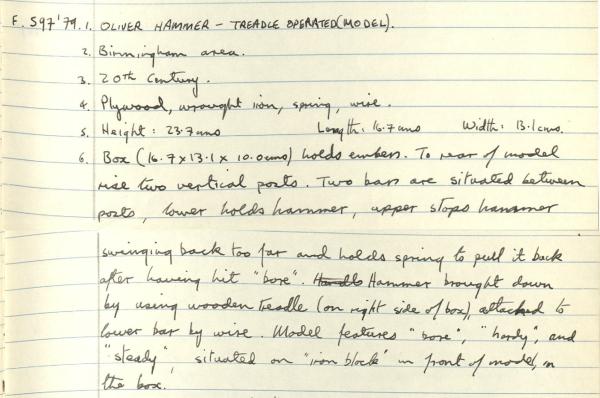 F. S97'79. 1. OLIVER HAMMER - TREADLE OPERATED (MODEL).
2. Birmingham area.
3. 20th Century.
4. Plywood, wrought iron, spring, wire.
5. Height: 23.7cms Length: 16.7cms Width: 13.1cms.
6. Box (16.7 x 13.1 x 10.0cms) holds embers. To rear of model
rise two vertical posts. Two bars are situated between
posts, lower holds hammer, upper stops hammer
swinging back too far and holds spring to pull it back
after having hit "bore". Handle Hammer brought down
by using wooden treadle (on right side of box), attached to
lower bar by wire. Model features "bore", "hardy", and
"steady", situated on "iron block" in front of model, in
the box.